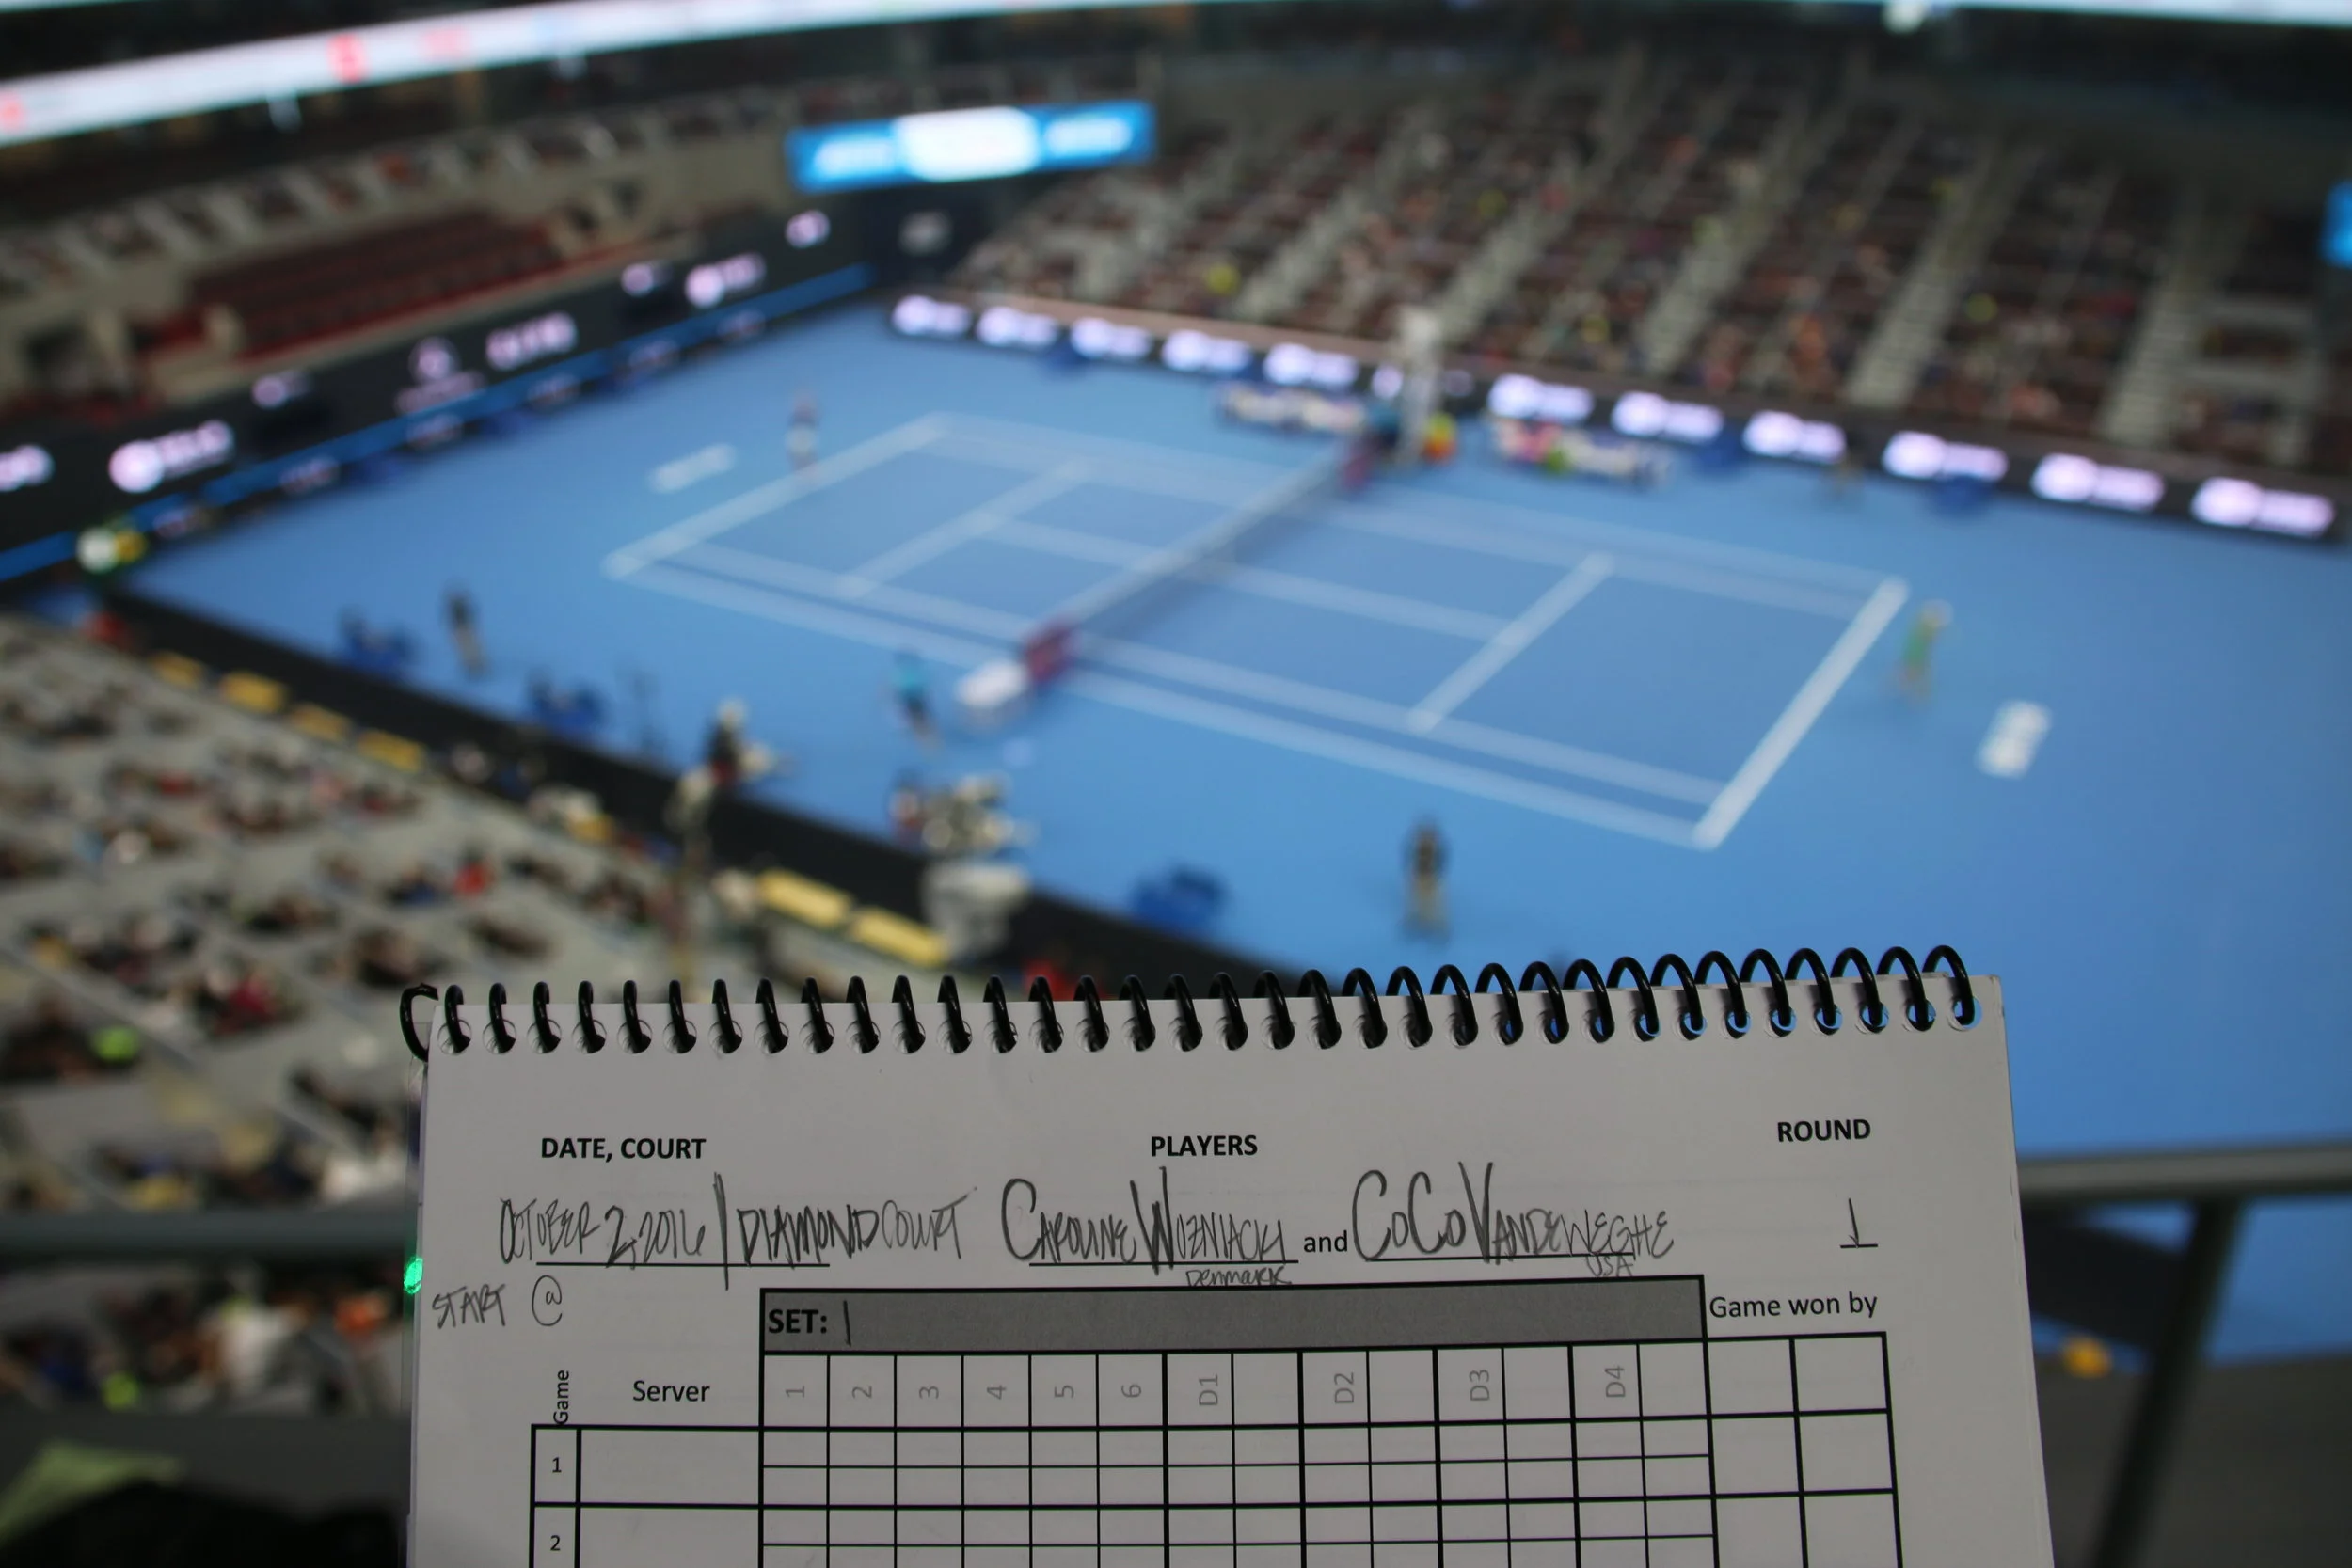 DATE, COURT PLAYERS ROUND
OCTOBER 2, 2016 | DIAMOND COURT CAROLINE WOZNIACKI and COCO VANDEWEGHE 1
Denmark USA
START @
SET: 1 Game won by
Game Server 1 2 3 4 5 6 D1 D2 D3 D4
1
2